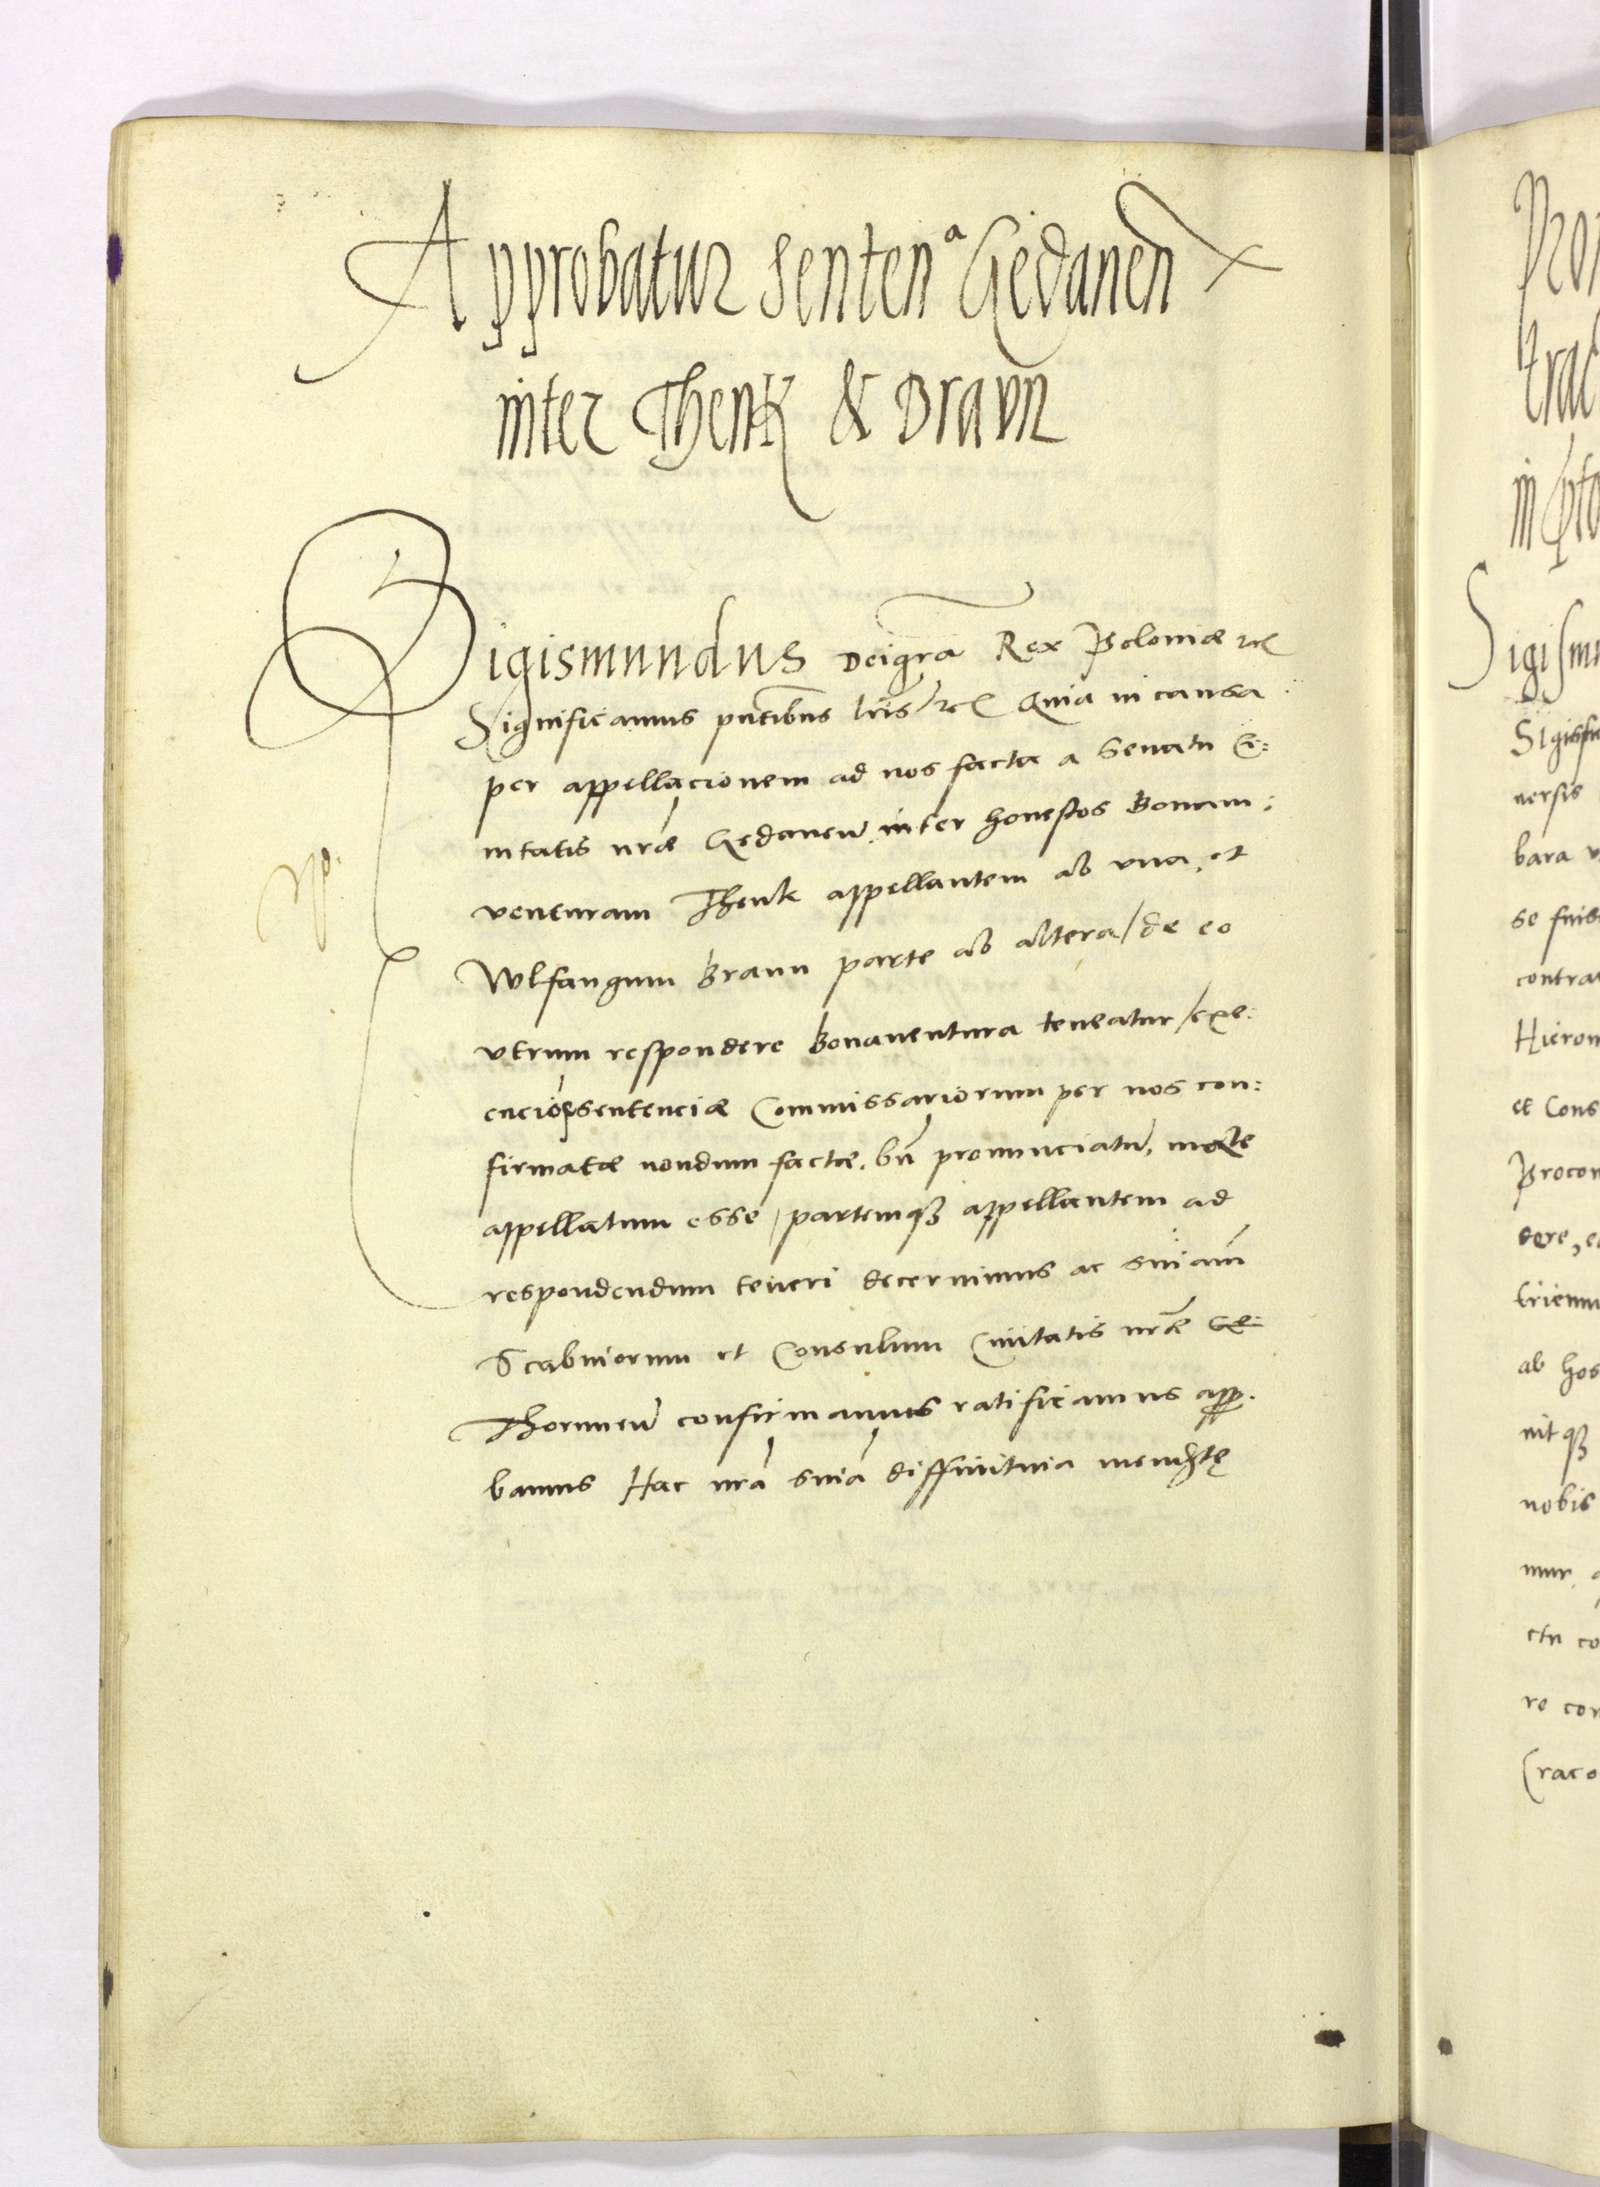 Approbatur Sentenᵃ Gedanen
inter Thenk & Braun
Sigismundus Dei gra Rex Poloniæ etc
Significamus pntibus lris etc Quia in causa
per appellacionem ad nos facta a Senatu Ci:
uitatis nræ Gedanen inter honestos Bonam:
venturam Thenk appellantem ab vna, et
Wlfangum Braun parte ab altera / de eo
vtrum respondere Bonauentura teneatur / exe:
cucione sentenciæ Commissariorum per nos con:
firmatæ nondum factæ. bn pronunciatum, male
appellatum esse, partemqȝ appellantem ad
respondendum teneri decernimus ac sniam
Scabinorum et Consulum Ciuitatis nræ Ge:
Thorunen confirmamus ratificamus appro:
bamus Hac nra snia diffinitiua mediante
Pror
trac
in
Sigismu
Signifi
uersis
bara v
se fuis
contra
Hieron
et Cons
Procon
dere, e
trienn
ab hos
nitqȝ
nobis
mur,
ctu co
re con
Craco